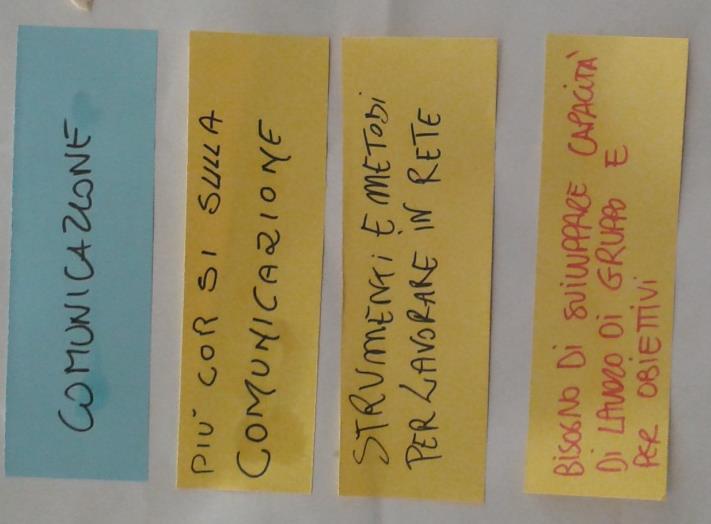 COMUNICAZIONE
PIÙ CORSI SULLA
COMUNICAZIONE
STRUMENTI E METODI
PER LAVORARE IN RETE
BISOGNO DI SVILUPPARE CAPACITÀ
DI LAVORO DI GRUPPO E
PER OBIETTIVI